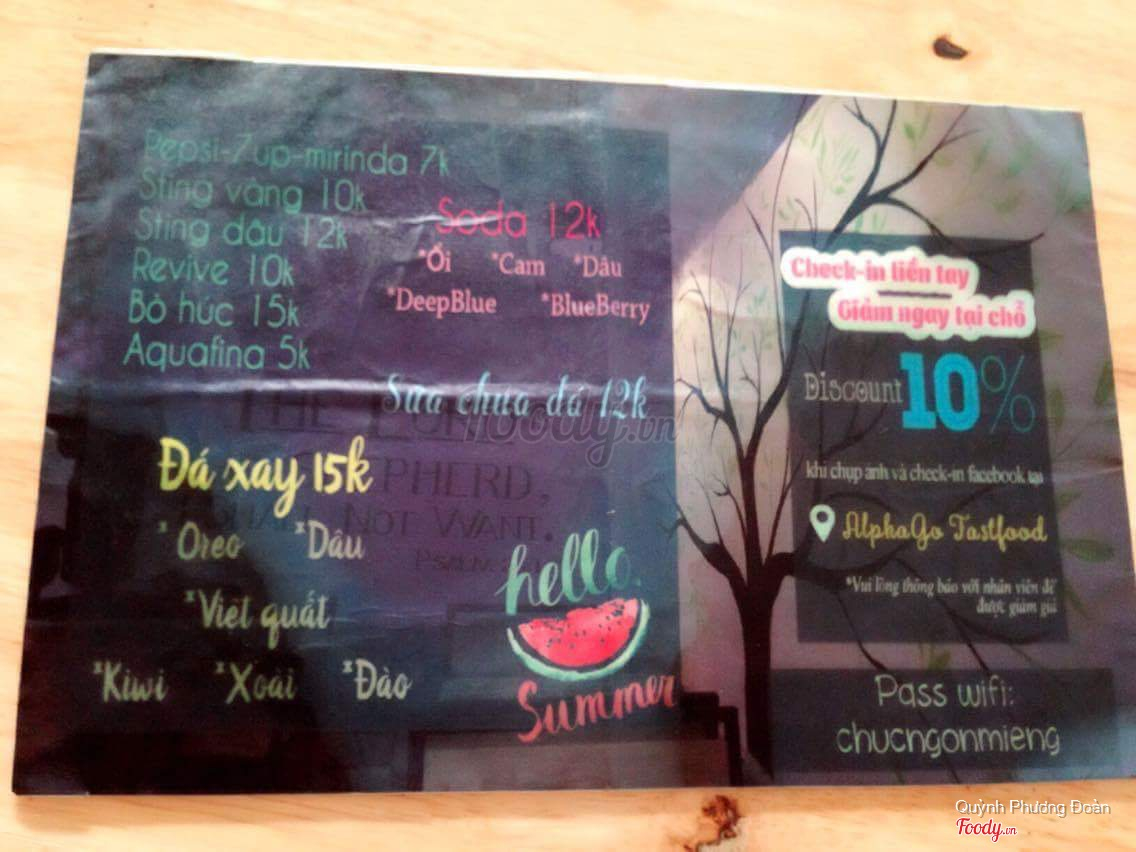 Pepsi-7up-mirinda 7k
Sting vàng 10k
Sting dâu 12k
Revive 10k
Bò húc 15k
Aquafina 5k
Soda 12k
*Ổi *Cam *Dâu
*DeepBlue *BlueBerry
Sữa chua đá 12k
THE LORD
SHEPHERD,
SHALL NOT WANT.
foody.vn
Đá xay 15k
*Oreo *Dâu
*Việt quất
*Kiwi *Xoài *Đào
hello
Summer
Check-in liền tay
Giảm ngay tại chỗ
Discount 10%
khi chụp ảnh và check-in facebook tại
AlphaGo Fastfood
*Vui lòng thông báo với nhân viên để
được giảm giá
Pass wifi:
chucngonmieng
Quỳnh Phương Đoàn
Foody.vn